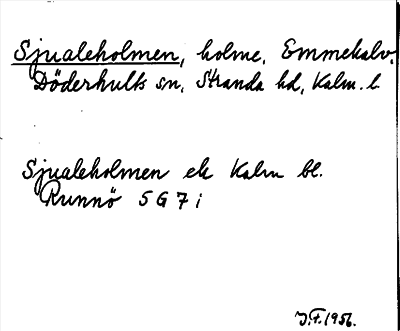 Sjualeholmen, holme, Emmekalv,
Döderhults sn, Stranda hd, Kalm. l.
Sjualeholmen ek Kalm bl.
Runnö 5 G 7 i
J.F. 1956.